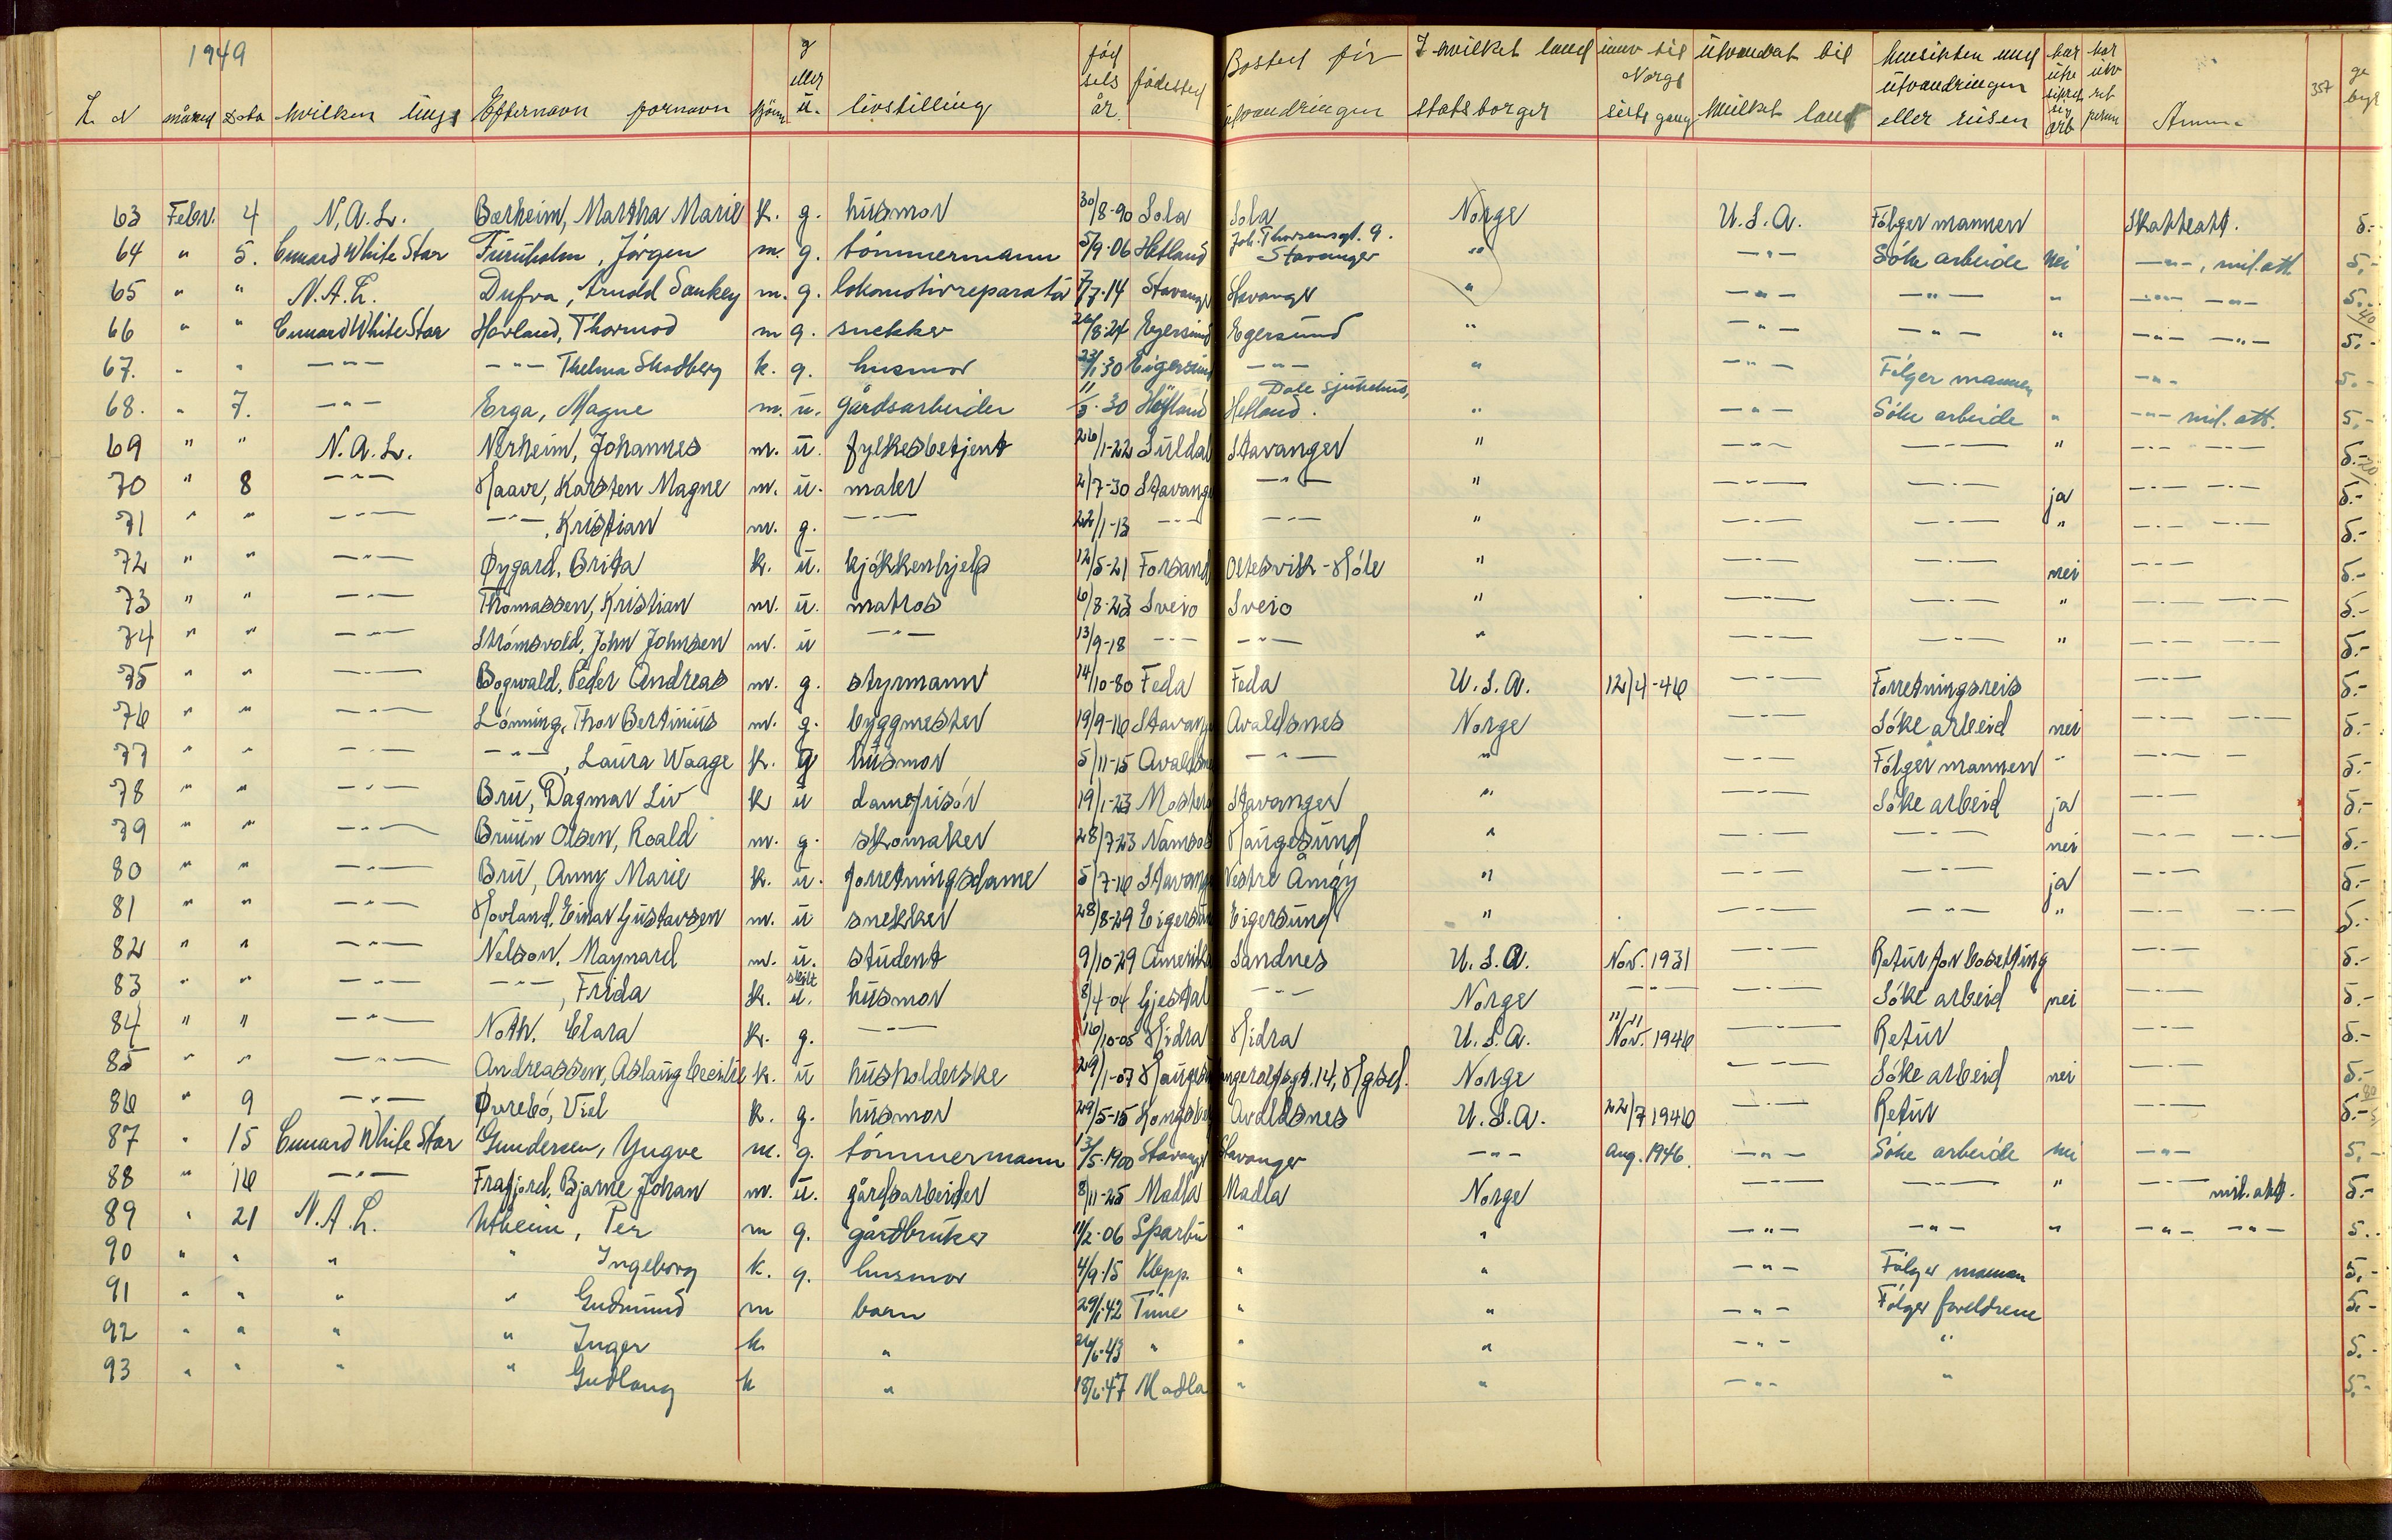 1949
L. N måned Dato hvilken linje Efternavn fornavn kjönn g eller u. livstilling fød sels år. fødested Bosted før utvandringen I hvilket land statsborger innv til Norge siste gang utvandret til hvilket land hensikten med utvandringen eller reisen har utv ret Anm 357 ge byr
63 Febr. 4 N.A.L. Bærheim, Martha Marie k. g. husmor 30/8-90 Sola Sola Norge U.S.A. Følger mannen Skatteatt. 5.-
64 " 5. Cunard White Star Furuholm, Jörgen m. g. tömmermann 5/9-06 Hetland Joh. Thorsensgt. 9. Stavanger " -"- Söke arbeide nei -"-, mil. att. 5.-
65 " " N.A.L. Dufva, Arnold Sankey m. g. lokomotivreparatör 7/7-14 Stavanger Stavanger " -"- -"- " -"- -"- 5.-
66 " " Cunard White Star Hovland, Thormod m g. snekker 26/8-24 Egersund Egersund " -"- -"- " -"- -"- 5.-
67. " " -"- -"- Thelma Skadberg k. g. husmor 23/1-30 Eigersund -"- " -"- Følger mannen -"- 5.-
68. " 7. -"- Erga, Magne m. u. gårdsarbeider 11/3-30 Høyland Dale sjukehus, Hetland. " -"- Söke arbeide " -"- mil. att. 5.-
69 " " N.A.L. Nerheim, Johannes m. u. fylkesbetjent 26/1-22 Suldal Stavanger " -"- -"- " -"- -"- 5.-
70 " 8 -"- Haave, Karsten Magne m. u. maler 2/7-30 Stavanger -"- " -"- -"- ja -"- -"- 5.-
71 " " -"- -"-, Kristian m. g. -"- 22/1-13 -"- -"- " -"- -"- " -"- -"- 5.-
72 " " -"- Øygard, Brita k. u. kjökkenhjelp 12/5-21 Forsand Oltesvik-Höle " -"- -"- nei -"- 5.-
73 " " -"- Thomassen, Kristian m. u. matros 6/8-23 Sveio Sveio " -"- -"- " -"- -"- 5.-
74 " " -"- Strömsvold, John Johnsen m. u -"- 13/9-18 -"- -"- " -"- -"- " -"- -"- 5.-
75 " " -"- Bogwald, Peder Andreas m. g. styrmann 14/10-80 Feda Feda U.S.A. 12/4-46 -"- Forretningsreis 5.-
76 " " -"- Lönning, Thor Bertinius m. g. byggmester 19/9-16 Stavanger Avaldsnes Norge -"- Söke arbeid nei -"- -"- 5.-
77 " " -"- -"-, Laura Waage k. g husmor 5/11-15 Avaldsnes -"- " -"- Følger mannen " -"- 5.-
78 " " -"- Bru, Dagmar Liv k u damefrisör 19/1-23 Mosterö Stavanger " -"- Söke arbeid ja -"- 5.-
79 " " -"- Bruun Olsen, Roald m. g. skomaker 28/7-23 Namsos Haugesund " -"- -"- nei -"- -"- 5.-
80 " " -"- Bru, Anny Marie k. u. forretningsdame 5/7-16 Stavanger Vestre Åmöy " -"- -"- ja -"- 5.-
81 " " -"- Hovland, Einar Gustavsen m. u snekker 28/8-29 Eigersund Eigersund " -"- -"- " -"- -"- 5.-
82 " " -"- Nelson, Maynard m. u. student 9/10-29 Amerika Sandnes U.S.A. Nov. 1931 -"- Retur for bosetting -"- 5.-
83 " " -"- -"-, Frida k. skilt u. husmor 8/4-04 Gjestal -"- Norge -"- -"- Söke arbeid nei -"- 5.-
84 " " -"- Noth, Clara k. g. -"- 16/10-05 Hidra Hidra U.S.A. 11/11 Nov. 1946 -"- Retur -"- 5.-
85 " " -"- Andreassen, Aslaug Cecilie k. u husholderske 29/1-07 Haugesund Norge -"- Söke arbeid nei -"- 5.-
86 " 9 -"- Øvrebö, Viel k. g. husmor 29/5-15 Kongsberg Avaldsnes U.S.A. 22/7 1946 -"- Retur -"- 5.-
87 " 15 Cunard White Star Gundersen, Yngve m. g. tömmermann 13/5-1900 Stavanger Stavanger -"- Aug. 1946. -"- Söke arbeide nei -"- 5.-
88 " 16 -"- Frafjord, Bjarne Johan m. u. gårdsarbeider 8/11-25 Madla Madla Norge -"- -"- " -"- mil. att. 5.-
89 " 21 N.A.L. Utheim, Per m g. gårdbruker 11/2-06 Sparbu " " -"- -"- " -"- -"- 5.-
90 " " " " Ingeborg k. g. husmor 4/9-15 Klepp. " " -"- Følger mannen 5.-
91 " " " " Gudmund m barn 29/1-42 Time " " -"- Følger foreldrene 5.-
92 " " " " Inger k. " 26/6-43 " " " -"- " 5.-
93 " " " " Gudlaug k " 18/6-47 Madla " " -"- " 5.-